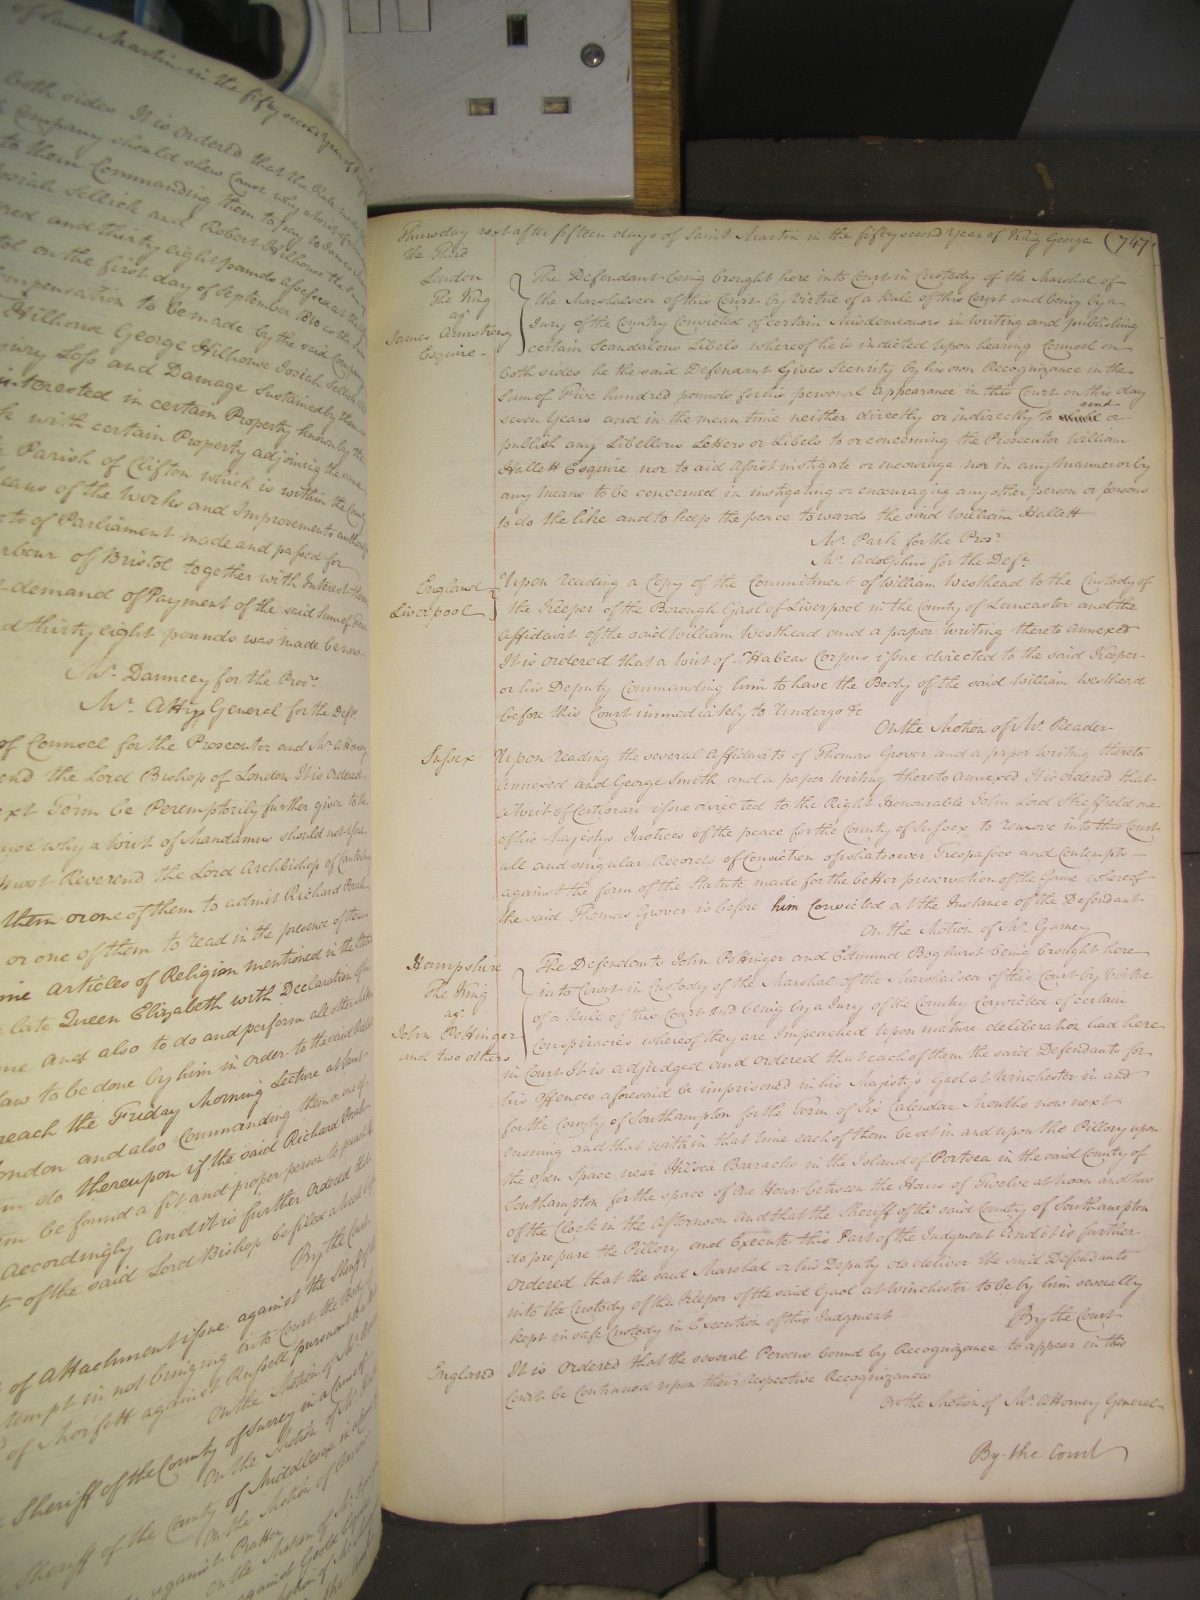 of Saint Martin in the fifty second Year of
both sides It is Ordered that the Rule made
Company should shew Cause why a writ of
to them Commanding them to pay to James
Josiah Sellick and Robert Hilhouse the sum
and thirty eight pounds assessed at the
on the first day of September 1810 as the
Compensation to be made by the said Company
Hilhouse George Hilhouse Josiah Sellick
Loss and Damage Sustained by them
interested in certain Property known by the
with certain Property adjoining the same
Parish of Clifton which is within the County
means of the Works and Improvements authorized
Acts of Parliament made and passed for
Harbour of Bristol together with Interest
demand of Payment of the said Sum of
thirty eight pounds was made
Mr. Dauncey for the Prosr.
Mr. Atty General for the Deft.
of Counsel for the Prosecutor and Mr. Attorney
the Lord Bishop of London It is Ordered
Term be Peremptorily further given to
why a Writ of Mandamus should not issue
most Reverend the Lord Archbishop of Canterbury
them or one of them to admit Richard
or one of them to read in the presence of
Articles of Religion mentioned in the
late Queen Elizabeth with Declaration of
and also to do and perform all other
law to be done by him in Order to the said
preach the Friday Morning Lecture at
London and also Commanding them or one of
do thereupon if the said Richard
be found a fit and proper person to
Accordingly And it is further Ordered that
of the said Lord Bishop be filed
By the Court
of Attachment issue against the Sheriff
in not bringing into Court the Body
against Russell pursuant
On the Motion of Mr.
Sheriff of the County of Surrey in a Cause of
On the Motion of Mr.
Sheriff of the County of Middlesex in
On the Motion of
against
On the Motion of Mr.
against
Thursday next after fifteen days of Saint Martin in the fifty second Year of King George (747
the Third
London
The King
agt.
James Armstrong
Esquire
The Defendant being brought here into Court in Custody of the Marshal of
the Marshalsea of this Court by virtue of a Rule of this Court and being by a
Jury of the Country Convicted of certain Misdemeanors in writing and publishing
certain Scandalous Libels whereof he is indicted Upon hearing Counsel on
both sides he the said Defendant Gives Security by his own Recognizance in the
Sum of Five hundred pounds for his personal appearance in this Court on this day
seven Years and in the mean time neither directly or indirectly to send or
publish any Libellous Letters or Libels to or concerning the Prosecutor William
Hallett Esquire nor to aid assist instigate or encourage nor in any manner or by
any Means to be concerned in instigating or encouraging any other person or persons
to do the like and to keep the peace towards the said William Hallett
Mr. Park for the Prosr.
Mr. Adolphus for the Deft.
England
Liverpool
Upon reading a Copy of the Commitment of William Westhead to the Custody of
the Keeper of the Borough Gaol of Liverpool in the County of Lancaster and the
Affidavit of the said William Westhead and a paper Writing thereto annexed
It is ordered that a Writ of Habeas Corpus issue directed to the said Keeper
or his Deputy Commanding him to have the Body of the said William Westhead
before this Court immediately to Undergo &c
On the Motion of Mr. Reader
Sussex
Upon reading the several Affidavits of Thomas Grover and a paper Writing thereto
annexed and George Smith and a paper Writing thereto annexed It is ordered that
a Writ of Certiorari issue directed to the Right Honourable John Lord Sheffield one
of his Majestys Justices of the peace for the County of Sussex to remove into this Court
all and singular Records of Conviction of whatsoever Trespasses and Contempts
against the form of the Statute made for the better preservation of the Game whereof
the said Thomas Grover is before him Convicted at the Instance of the Defendant
On the Motion of Mr. Gurney
Hampshire
The King
agt.
John Pottinger
and two others
The Defendants John Pottinger and Edmund Baghurst being brought here
into Court in Custody of the Marshal of the Marshalsea of this Court by virtue
of a Rule of this Court And being by a Jury of the Country Convicted of certain
Conspiracies whereof they are Impeached Upon mature deliberation had here
in Court It is adjudged and ordered that each of them the said Defendants for
his Offences aforesaid be imprisoned in his Majestys Gaol at Winchester in and
for the County of Southampton for the Term of Six Calendar Months now next
ensuing and that within that time each of them be set in and upon the Pillory upon
the open Space near Hilsea Barracks in the Island of Portsea in the said County of
Southampton for the space of One Hour between the Hours of Twelve at noon and two
of the Clock in the Afternoon and that the Sheriff of the said County of Southampton
do prepare the Pillory and Execute this Part of the Judgment And it is further
Ordered that the said Marshal or his Deputy do deliver the said Defendants
into the Custody of the Keeper of the said Gaol at Winchester to be by him severally
kept in safe Custody in Execution of this Judgment
By the Court
England
It is Ordered that the several Persons bound by Recognizance to appear in this
Court be Continued upon their respective Recognizances
On the Motion of Mr. Attorney General
By the Court